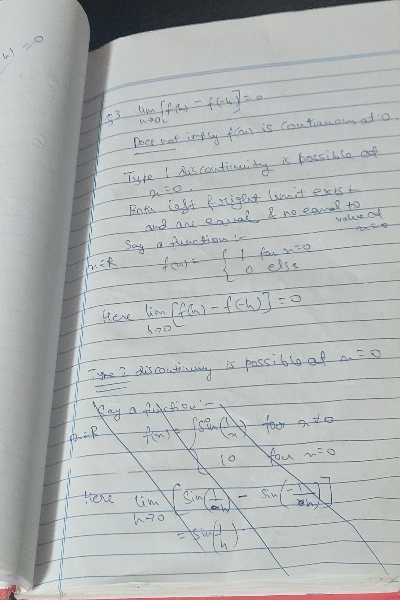 =0
Q3 lim h→0 [f(h) - f(-h)] = 0
Does not imply f(x) is continuous at 0
Type 1 discontinuity is possible at
x=0.
Both left & right limit exist
and are equal & no equal to value of
Say a function:-
x∈R f(x) = { 1 for x=0
{ 0 else
Here lim h→0 [f(h) - f(-h)] = 0
Type 2 discontinuity is possible at x = 0
Say a function:-
x∈R f(x) = { sin(1/x) for x≠0
{ 10 for x=0
Here lim h→0 [sin(1/h) - sin(-1/h)]
= sin(1/h)